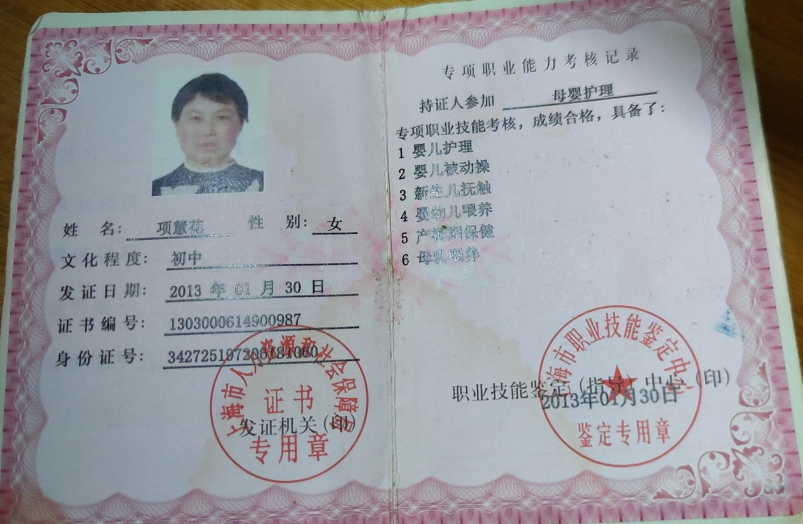 姓 名: 项慧花 性 别: 女
文化程度: 初中
发证日期: 2013 年 01 月 30 日
证书编号: 1303000614900987
身份证号:
上海市人力资源和社会保障局
证书
发证机关(印)
专用章
专项职业能力考核记录
持证人参加 母婴护理
专项职业技能考核，成绩合格，具备了:
1 婴儿护理
2 婴儿被动操
3 新生儿抚触
4 婴幼儿喂养
5 产褥期保健
6 母乳喂养
上海市职业技能鉴定中心
职业技能鉴定(指导)中心(印)
2013年01月30日
鉴定专用章